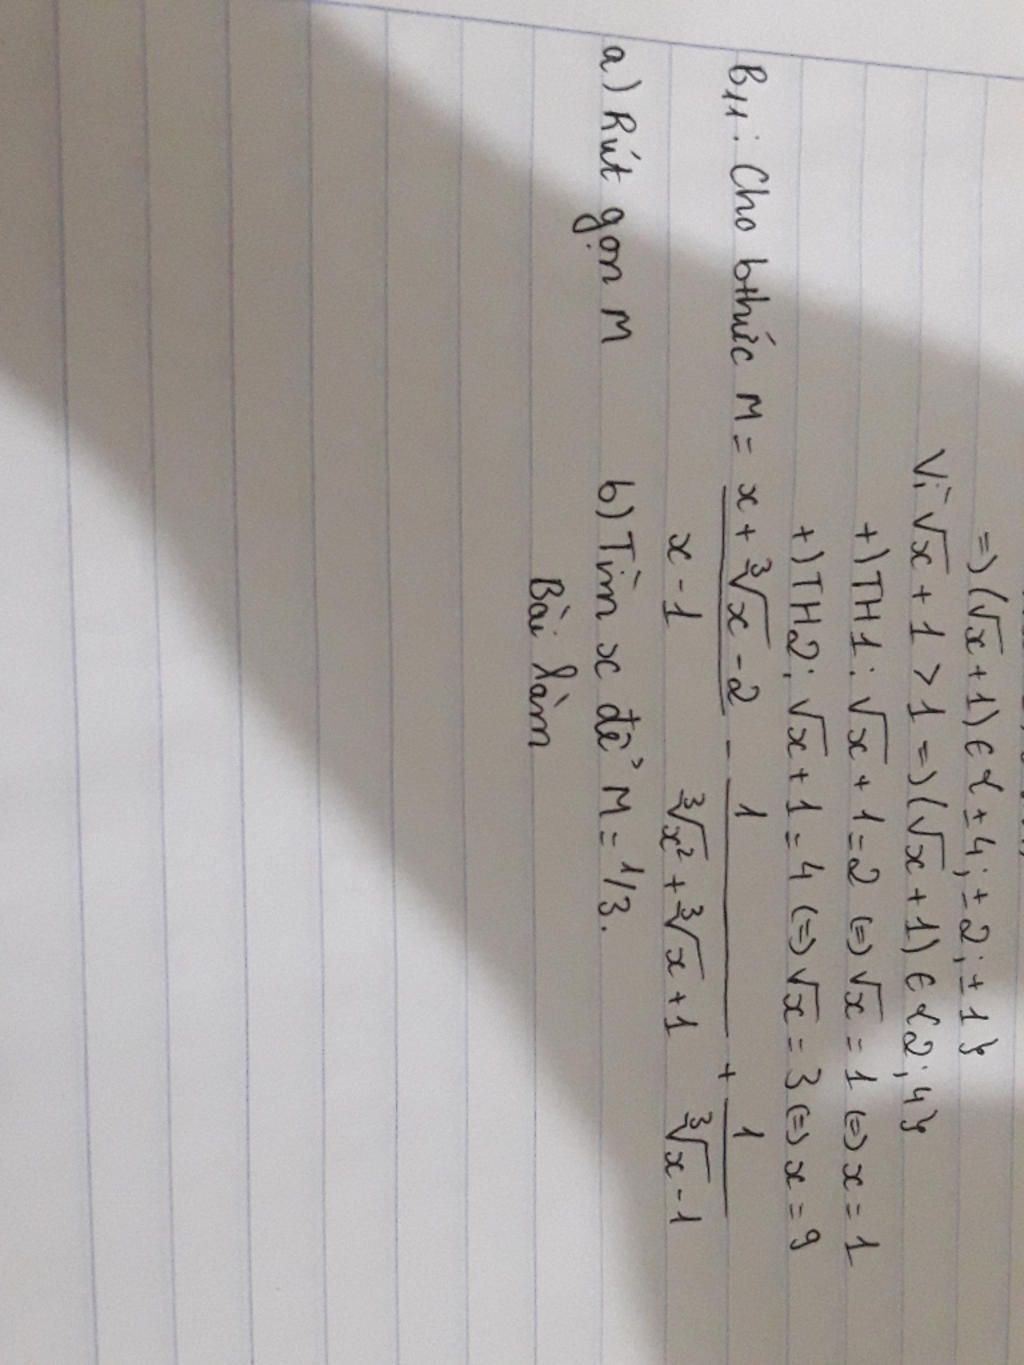 =) (√x + 1) ∈ {±4; ±2; ±1}
Vì √x + 1 > 1 =) (√x + 1) ∈ {2; 4}
+) TH1: √x + 1 = 2 (=) √x = 1 (=) x = 1
+) TH2: √x + 1 = 4 (=) √x = 3 (=) x = 9
B11: Cho bthức M = (x + ∛x - 2)/(x - 1) - 1/(∛x² + ∛x + 1) + 1/(∛x - 1)
a) Rút gọn M b) Tìm x để M = 1/3.
Bài làm